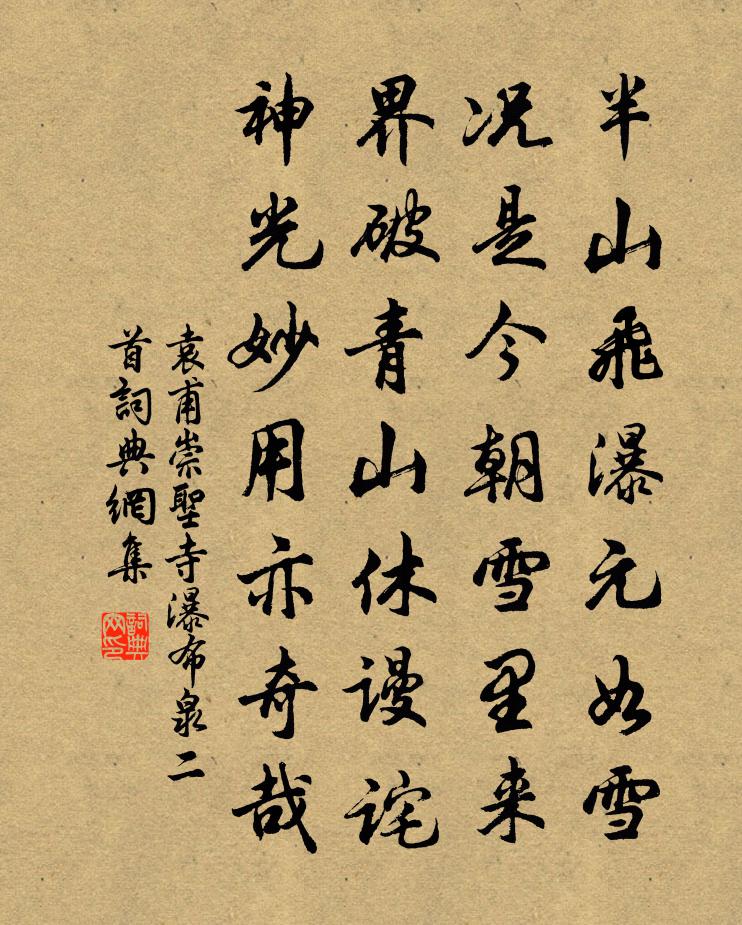 半山飛瀑元如雪
況是今朝雪里来
界破青山休謾詫
神光妙用亦奇哉
袁甫崇聖寺瀑布泉二
首詞典網集
詞典
网印